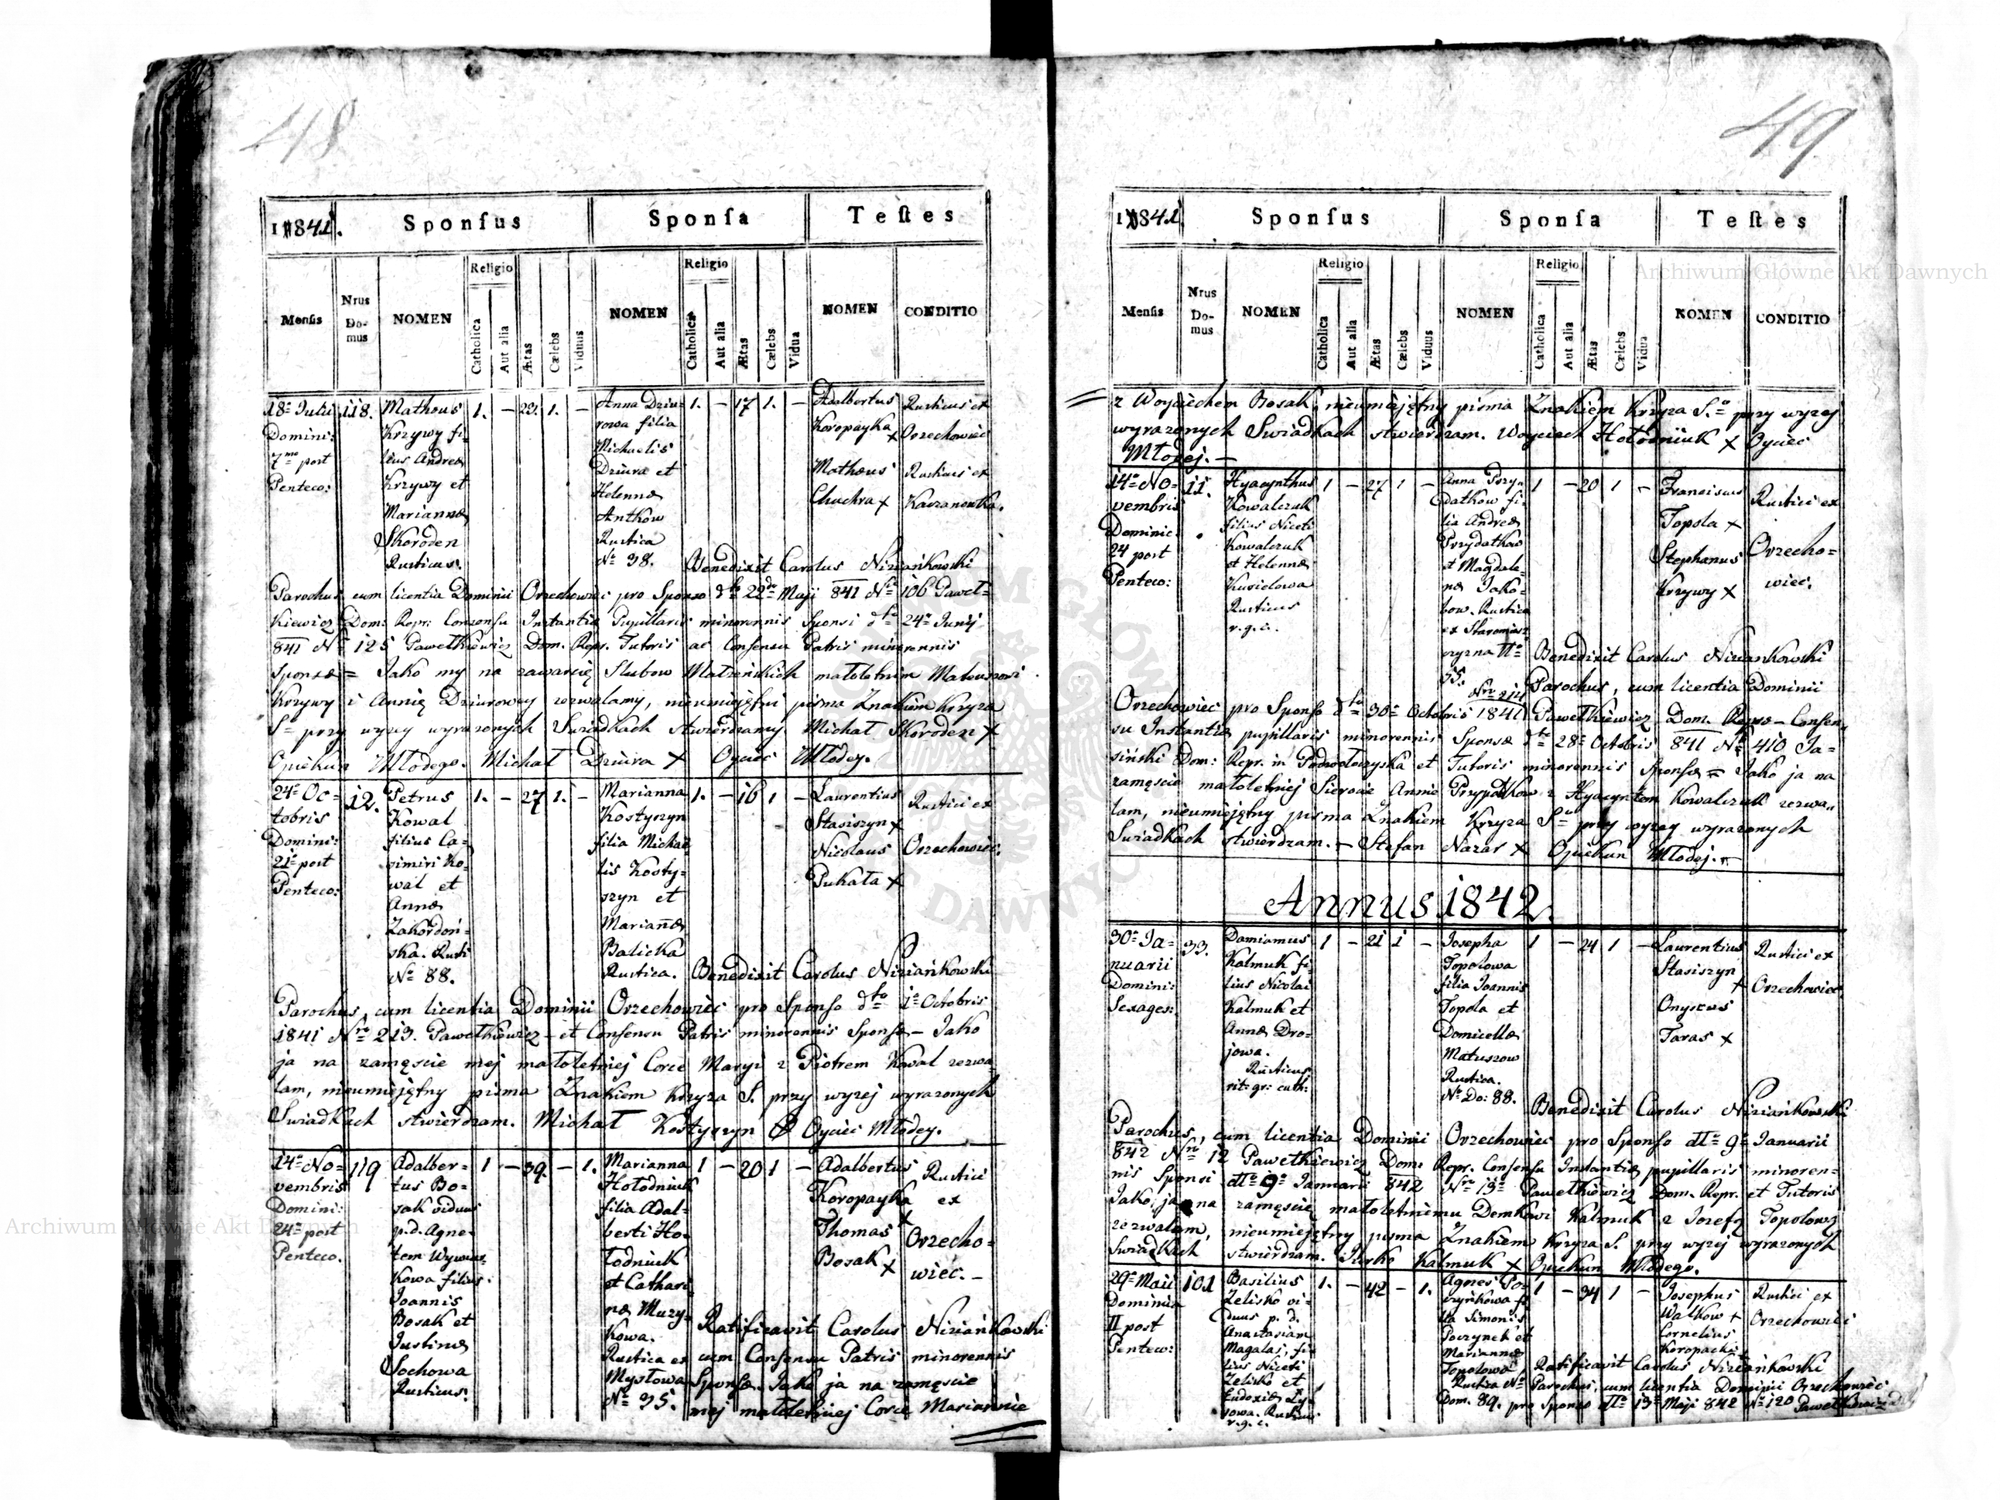 48
1841.
Sponsus
Sponsa
Testes
Mensis
Nrus Domus
NOMEN
Religio
Catholica
Aut alia
Ætas
Cælebs
Viduus
NOMEN
Religio
Catholica
Aut alia
Ætas
Cælebs
Vidua
NOMEN
CONDITIO
18a Julii
Domini:
7ma post
Penteco:
118.
Matheus
Krzywy fi-
lius Andreæ
Krzywy et
Mariannæ
Skoroden
Rusticus.
1. - 22. 1. -
Anna Dziu-
rowa filia
Michaelis
Dziura et
Helennæ
Antkow
Rustica
No 98.
1. - 17 1. -
Adalbertus
Koropayka
x
Matheus
Chuchra x
Rusticus ex
Orzechowiec
Rusticus ex
Kaczanowka.
Benedixit Carolus Niziankowski
Parochus cum licentia Dominii Orzechowiec pro Sponso dto 22da Maji 841 No 106 Pawel-
kiewicz Dom: Repr: Consensu Instantiæ Pupillaris minorennis Sponsi dto 24a Junij
841 No 125 Pawelkiewicz Dom. Repr. Tutoris ac Consensu Patris minorennis
Sponsæ = Jako my na zawarcie Slubow Malzenskich maloletnim Mateuszowi
Krzywy i Annie Dziurowey zezwalamy, nieumiejętni pisma Znakiem Krzyza
So przy wyzey wyrazonych Swiadkach stwierdzamy Michał Skoroden x
Opiekun Młodego. Michał Dziura x Oyciec Młodey.
24a Oc-
tobris
Domini:
21a post
Penteco:
12.
Petrus
Kowal
filius Ca-
simiri Ko-
wal et
Annæ
Zakordoń-
ska. Rusti
No 88.
1. - 27 1. -
Marianna
Kostyszyn
filia Michae
lis Kosty-
szyn et
Mariannæ
Balicka
Rustica.
1. - 16 1 -
Laurentius
Stasiszyn x
Nicolaus
Pukała x
Rustici ex
Orzechowiec.
Benedixit Carolus Niziańkowski
Parochus, cum licentia Dominii Orzechowiec pro Sponso dto 1a Octobris
1841 Nro 213. Pawelkiewicz - et Consensu Patris minorennis Sponsæ - Jako
ja na zamęscie mej małoletniej Corce Maryi z Piotrem Kowal zezwa
lam, nieumiejętny pisma Znakiem Krzyza S. przy wyzej wyrazonych
Swiadkach stwierdzam. Michał Kostyszyn Oyciec Młodey.
14a No-
vembris
Domini:
24a post
Penteco.
119
Adalber-
tus Bo-
sak viduus
p.d. Agne-
tem
kowa filius
Joannis
Bosak et
Justinæ
Sochowa
Rusticus.
1 - 39. - 1.
Marianna
Hołodniuk
filia Adal-
berti Ho-
łodniuk
et Cathari
næ Muzy-
kowa.
Rustica ex
Mysłowa
No 95.
1 - 20 1 -
Adalbertus
Koropayka
x
Thomas
Bosak x
Rustici
ex
Orzecho-
wiec. -
Ratificavit Carolus Niziańkowski
cum Consensu Patris minorennis
Sponsæ. Jako ja na zamęscie
mej małoletniej Corce Mariannie
49
1841
Sponsus
Sponsa
Testes
Mensis
Nrus Domus
NOMEN
Religio
Catholica
Aut alia
Ætas
Cælebs
Viduus
NOMEN
Religio
Catholica
Aut alia
Ætas
Cælebs
Vidua
NOMEN
CONDITIO
z Woyciechem Bosak, nieumiejętny pisma Znakiem Krzyza S.o przy wyzej
wyrazonych Swiadkach stwierdzam. Woyciech Hołodniuk x Oyciec
Młodej. -
14a No-
vembris
Dominic:
24 post
Penteco:
11.
Hyacynthus
Kowalczuk
filius Niceti
Kowalczuk
et Helennæ
Kusielowa
Rusticus
r.g.c.
1 - 27 1 -
Anna Przy-
datkow fi-
lia Andreæ
Przydatkow
et Magdale-
næ Jako-
bow. Rustica
ex Staromiesz
czyzna No
95.
1 - 20 1 -
Franciscus
Topola x
Stephanus
Krzywy x
Rustici ex
Orzecho-
wiec.
Benedixit Carolus Niziankowski
Parochus, cum licentia Dominii
Orzechowiec pro Sponso dto 30a Octobris 1841 Nro 214 Pawelkiewicz Dom. Repr. - Consen-
su Instantiæ pupillaris minorennis Sponsæ dto 28a Octobris 841 No 410 Ja-
siński Dom: Repr. in Podwołoczyska et Tutoris minorennis Sponsæ = Jako ja na
zamęscie małoletniej Sierocie Annie Przydatkow z Hyacyntem Kowalczuk zezwa-
lam, nieumiejętny pisma Znakiem Krzyza So przy wyzey wyrazonych
Swiadkach stwierdzam. - Stefan Nazar x Opiekun Młodej. -
Annus 1842.
30a Ja-
nuarii
Domini:
Sexages:
33.
Damianus
Kalmuk fi-
lius Nicolai
Kalmuk et
Annæ Dro-
jowa.
Rusticus
rit: gr: cath:
1 - 21 1 -
Josepha
Topolowa
filia Joannis
Topola et
Domicellæ
Matuszow
Rustica.
No Do: 88.
1 - 24 1 -
Laurentius
Stasiszyn
x
Onyscus
Taras x
Rustici ex
Orzechowiec
Benedixit Carolus Niziańkowski
Parochus, cum licentia Dominii Orzechowiec pro Sponso dto 9a Januarii
842 Nro 12 Pawelkiewicz Dom: Repr. Consensu Instantiæ pupillaris minoren-
nis Sponsi dto 9a Januarii 842 Nro 13a Pawelkiewicz Dom. Repr. et Tutoris
Jako ja na zamęscie małoletniemu Demkowi Kalmuk z Jozefą Topolową
zezwalam, nieumiejętny pisma Znakiem Krzyza S. przy wyzej wyrazonych
Swiadkach stwierdzam. Kalmuk x Opiekun Młodego.
29a Maii
Dominica
II post
Penteco:
101
Basilius
Zelisko vi-
duus p. d.
Anastasiam
Magalas, fi-
lius Niceti
Zelisko et
Eudoxiæ
Rusticus
r.g.c.
1. - 42 - 1.
Agnes Po-
czynkowa fi-
lia Simonis
Poczynek et
Mariannæ
Topolowa
Rustica No
Dom. 89.
1 - 34 1 -
Josephus
Walkow +
Cornelius
Koropacki +
Rustici ex
Orzechowiec
Ratificavit Carolus Niziańkowski
Parochus, cum licentia Dominii Orzechowiec
pro Sponso dto 13a Maji 842 No 120 Pawelkiewicz
Archiwum Główne Akt Dawnych
Archiwum Główne Akt Dawnych